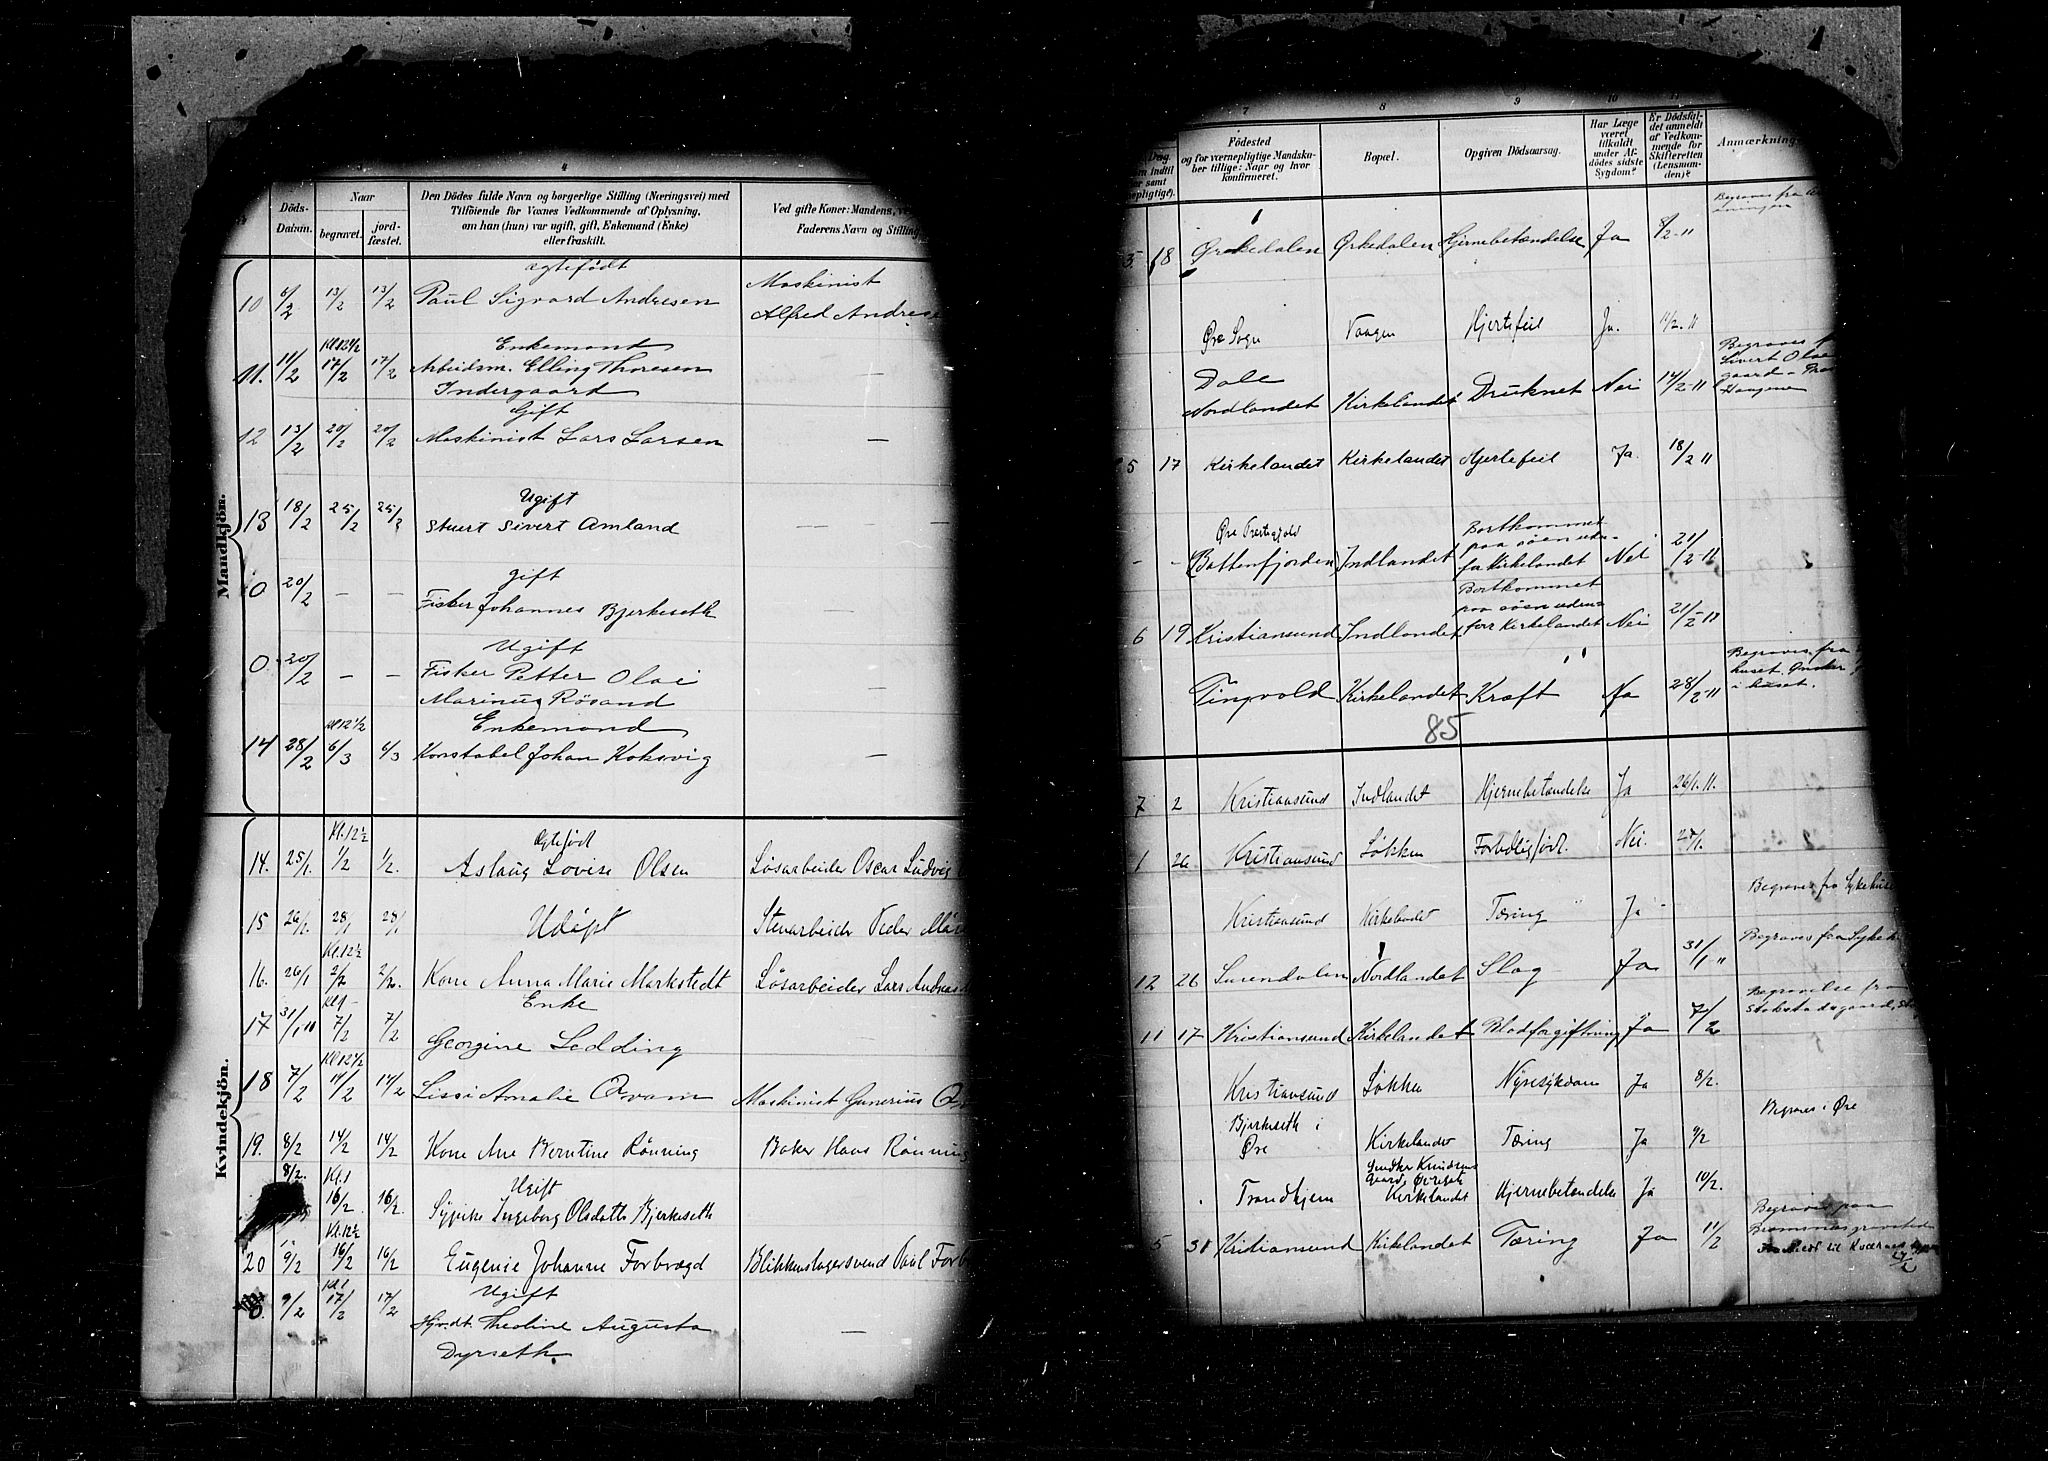 4
Döds-
Datum.
Naar
begravet.
jord-
fæstet.
Den Dödes fulde Navn og borgerlige Stilling (Næringsvei) med
Tilföiende for Voxnes Vedkommende af Oplysning,
om han (hun) var ugift, gift, Enkemand (Enke)
eller fraskilt.
Ved gifte Koner: Mandens,
Faderens Navn og Stilling
Mandkjön.
ægtefödt
10 6/2 13/2 13/2 Paul Sigvard Andresen
Maskinist
Alfred Andrese
Kl 12 1/2 Enkemand
11. 11/2 17/2 17/2 Arbeidsm. Elling Thoresen —
Indergaard
Gift
12 13/2 20/2 20/2 Maskinist Lars Larsen —
Ugift
13 18/2 25/2 25/2 Stuert Sivert Amland — —
gift
0 20/2 — — Fisker Johannes Bjerkeseth —
Ugift
0 20/2 — — Fisker Petter Olai —
Marinus Rösand
Kl 12 1/2 Enkemand
14 28/2 6/3 6/3 Konstabel Johan Koksvig —
Kvindekjön.
Kl. 12 1/2 Ægtefödt
14. 25/1. 1/2 1/2. Aslaug Lovise Olsen Løsarbeider Oscar Ludvig
15 26/1. 28/1 28/1 Udøpt Stenarbeider Peder
Kl. 12 1/2
16. 26/1 2/2 2/2. Kone Anna Marie Markstedt Løsarbeider Lars Andreas
Kl 1 Enke
17 31/1 11 7/2 7/2 Georgine Ledding
Kl 12 1/2
18 7/2 14/2 14/2 Lissi Amalie Qvam Maskinist Gunerius
19. 8/2 14/2 14/2 Kone Ane Berntine Rønning Baker Hans Rønning
8/2. Kl. 1 Ugift
16/2. 16/2. Sypike Ingeborg Olsdatter Bjerkeseth
Kl. 12 1/2
20 9/2 16/2 16/2 Eugenie Johanne Forbregd Blikkenslagersvend Paul Forb
Kl 1 Ugift
0. 9/2 17/2 17/2 Theoline Augusta —
Dyrseth.
7 8 9 10
Dag
Födested
og for værnepligtige Mandsku-
ber tillige: Naar og hvor
konfirmeret.
Bopæl.
Opgiven Dödsaarsag.
Har Læge
været
tilkaldt
under Af-
dödes sidste
Sygdom?
Er Dödsfal-
det anmeldt
af Vedkom-
mende for
Skifteretten
(Lensman-
den)?
Anmærkning
Begraves fra
5. 18 Ørkedalen Ørkedalen Hjernebetændelse Ja 8/2-11
Øre Sogn Vaagen Hjertefeil Ja. 11/2-11
Dale
Nordlandet Kirkelandet Druknet Nei 14/2-11
Begraves
Sivert
gaard
5 17 Kirkelandet Kirkelandet Hjertefeil Ja. 18/2 11
Øre Prestegjeld
- - (Battenfjorden) Indlandet
Bortkommet
paa søen uden-
for Kirkelandet Nei 21/2-11
6 19 Kristiansund Indlandet
Bortkommet
paa søen uden-
for Kirkelandet Nei 21/2-11
Tingvold Kirkelandet Kræft Ja 28/2-11
Begraves fra
huset. Ønsker
i huset.
85
7 2 Kristiansund Indlandet Hjernebetændelse Ja 26/1. 11.
1 26 Kristiansund Løkken Forbdligfødt. Nei. 27/1.
Kristiansund Kirkelandet Tæring Ja Begraves fra Sykehuse
12 26 Surendalen Nordlandet Slag Ja 31/1 " Begraves fra Sykeh
11 17 Kristiansund Kirkelandet Blodforgiftning Ja 7/2
Begravelse fra
Kristiansund Løkken Nyresykdom Ja 8/2.
Bjerkeseth i
Øre Kirkelandet Tæring Ja 9/2 Begraves i Øre
Snedker Knudsens
Gaard,
Trondhjem Kirkelandet Hjernebetændelse Ja 10/2.
5 31 Kristiansund Kirkelandet Tæring Ja 11/2
Begraves paa
Bremsnes gravsted